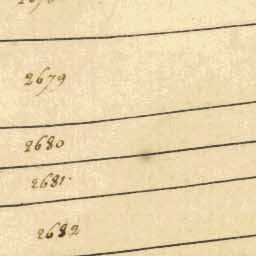 2679
2680
2681.
2682